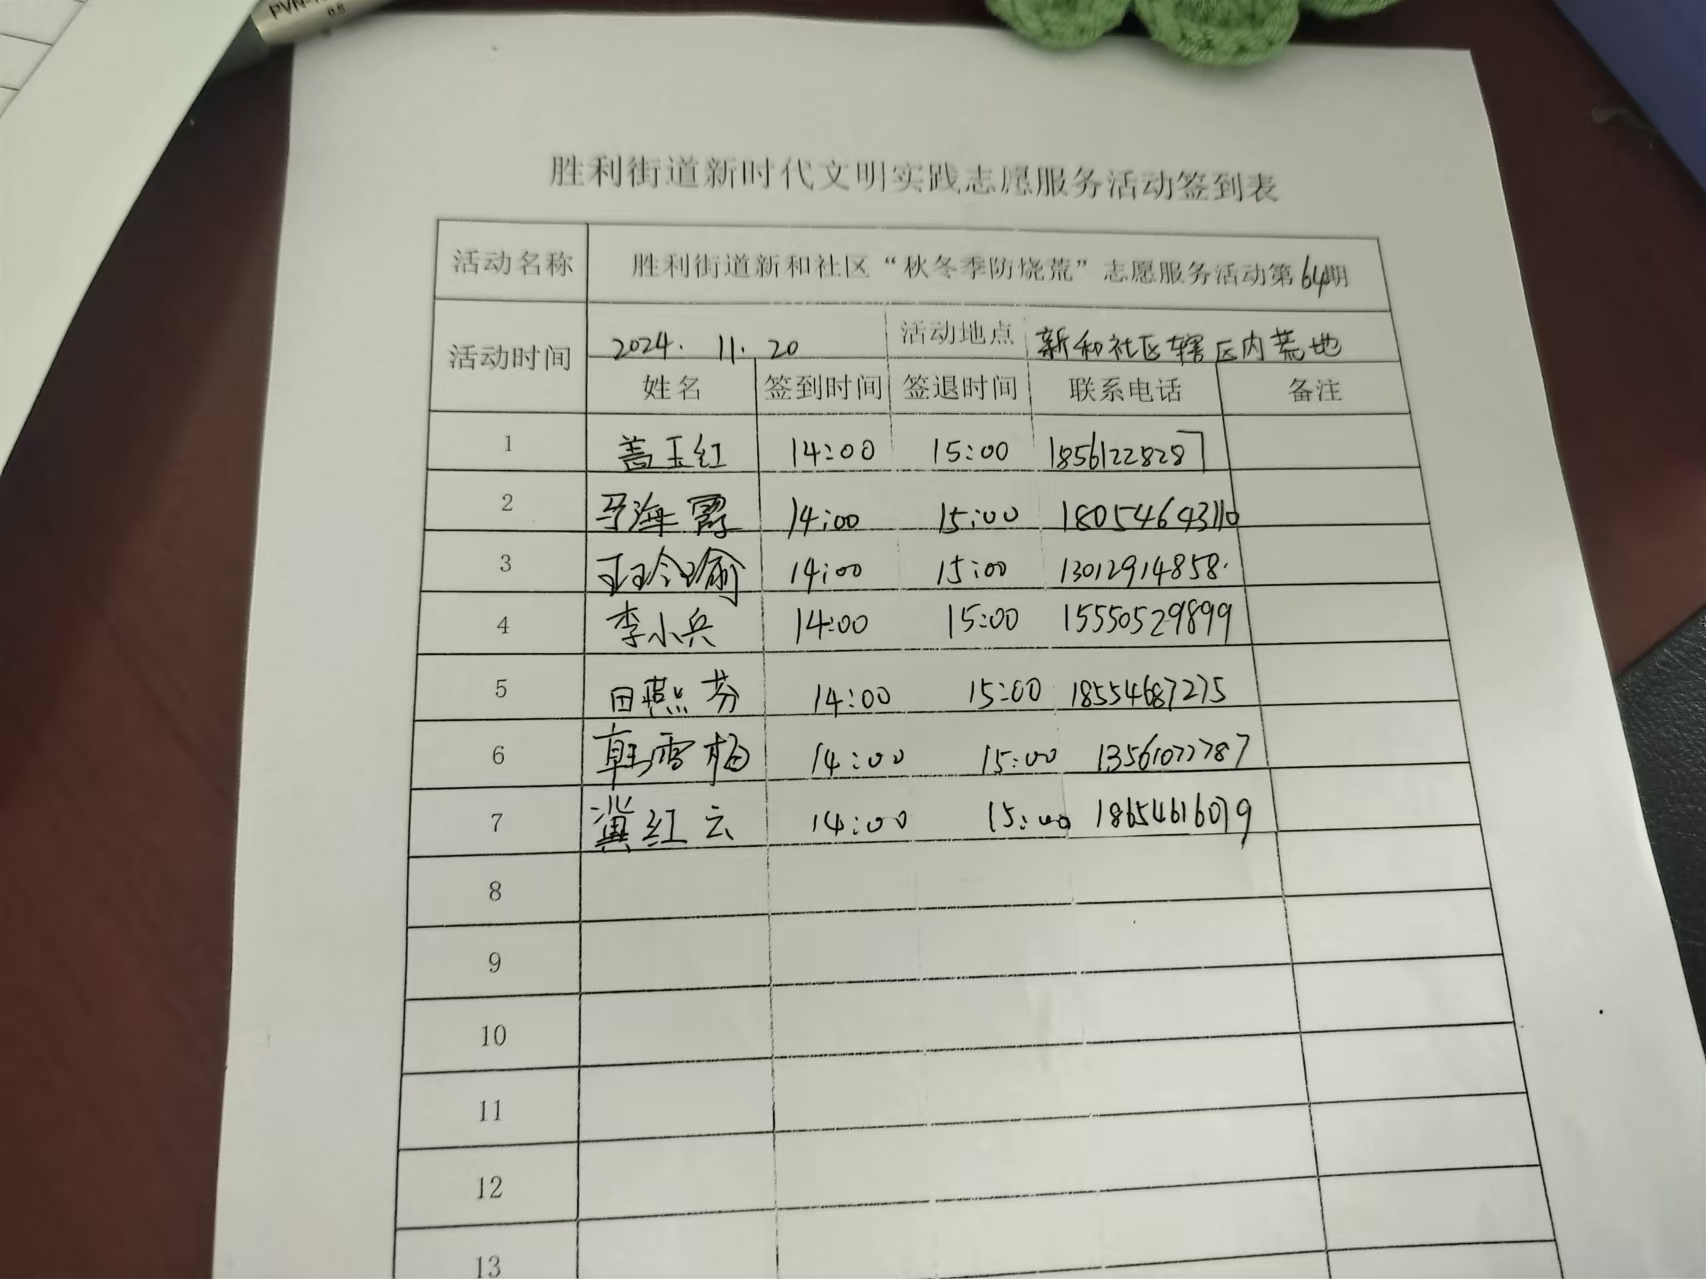 PVN-
0.5
胜利街道新时代文明实践志愿服务活动签到表
活动名称 胜利街道新和社区“秋冬季防烧荒”志愿服务活动第64期
活动时间 2024. 11. 20 活动地点 新和社区辖区内荒地
姓名 签到时间 签退时间 联系电话 备注
1 盖玉红 14:00 15:00 18561228287
2 马海霞 14:00 15:00 18054643110
3 王玲瑜 14:00 15:00 13012914858.
4 李小兵 14:00 15:00 15550529899
5 田燕芬 14:00 15:00 18554687275
6 韩雪梅 14:00 15:00 13561077787
7 冀红云 14:00 15:00 18654616079
8
9
10
11
12
13